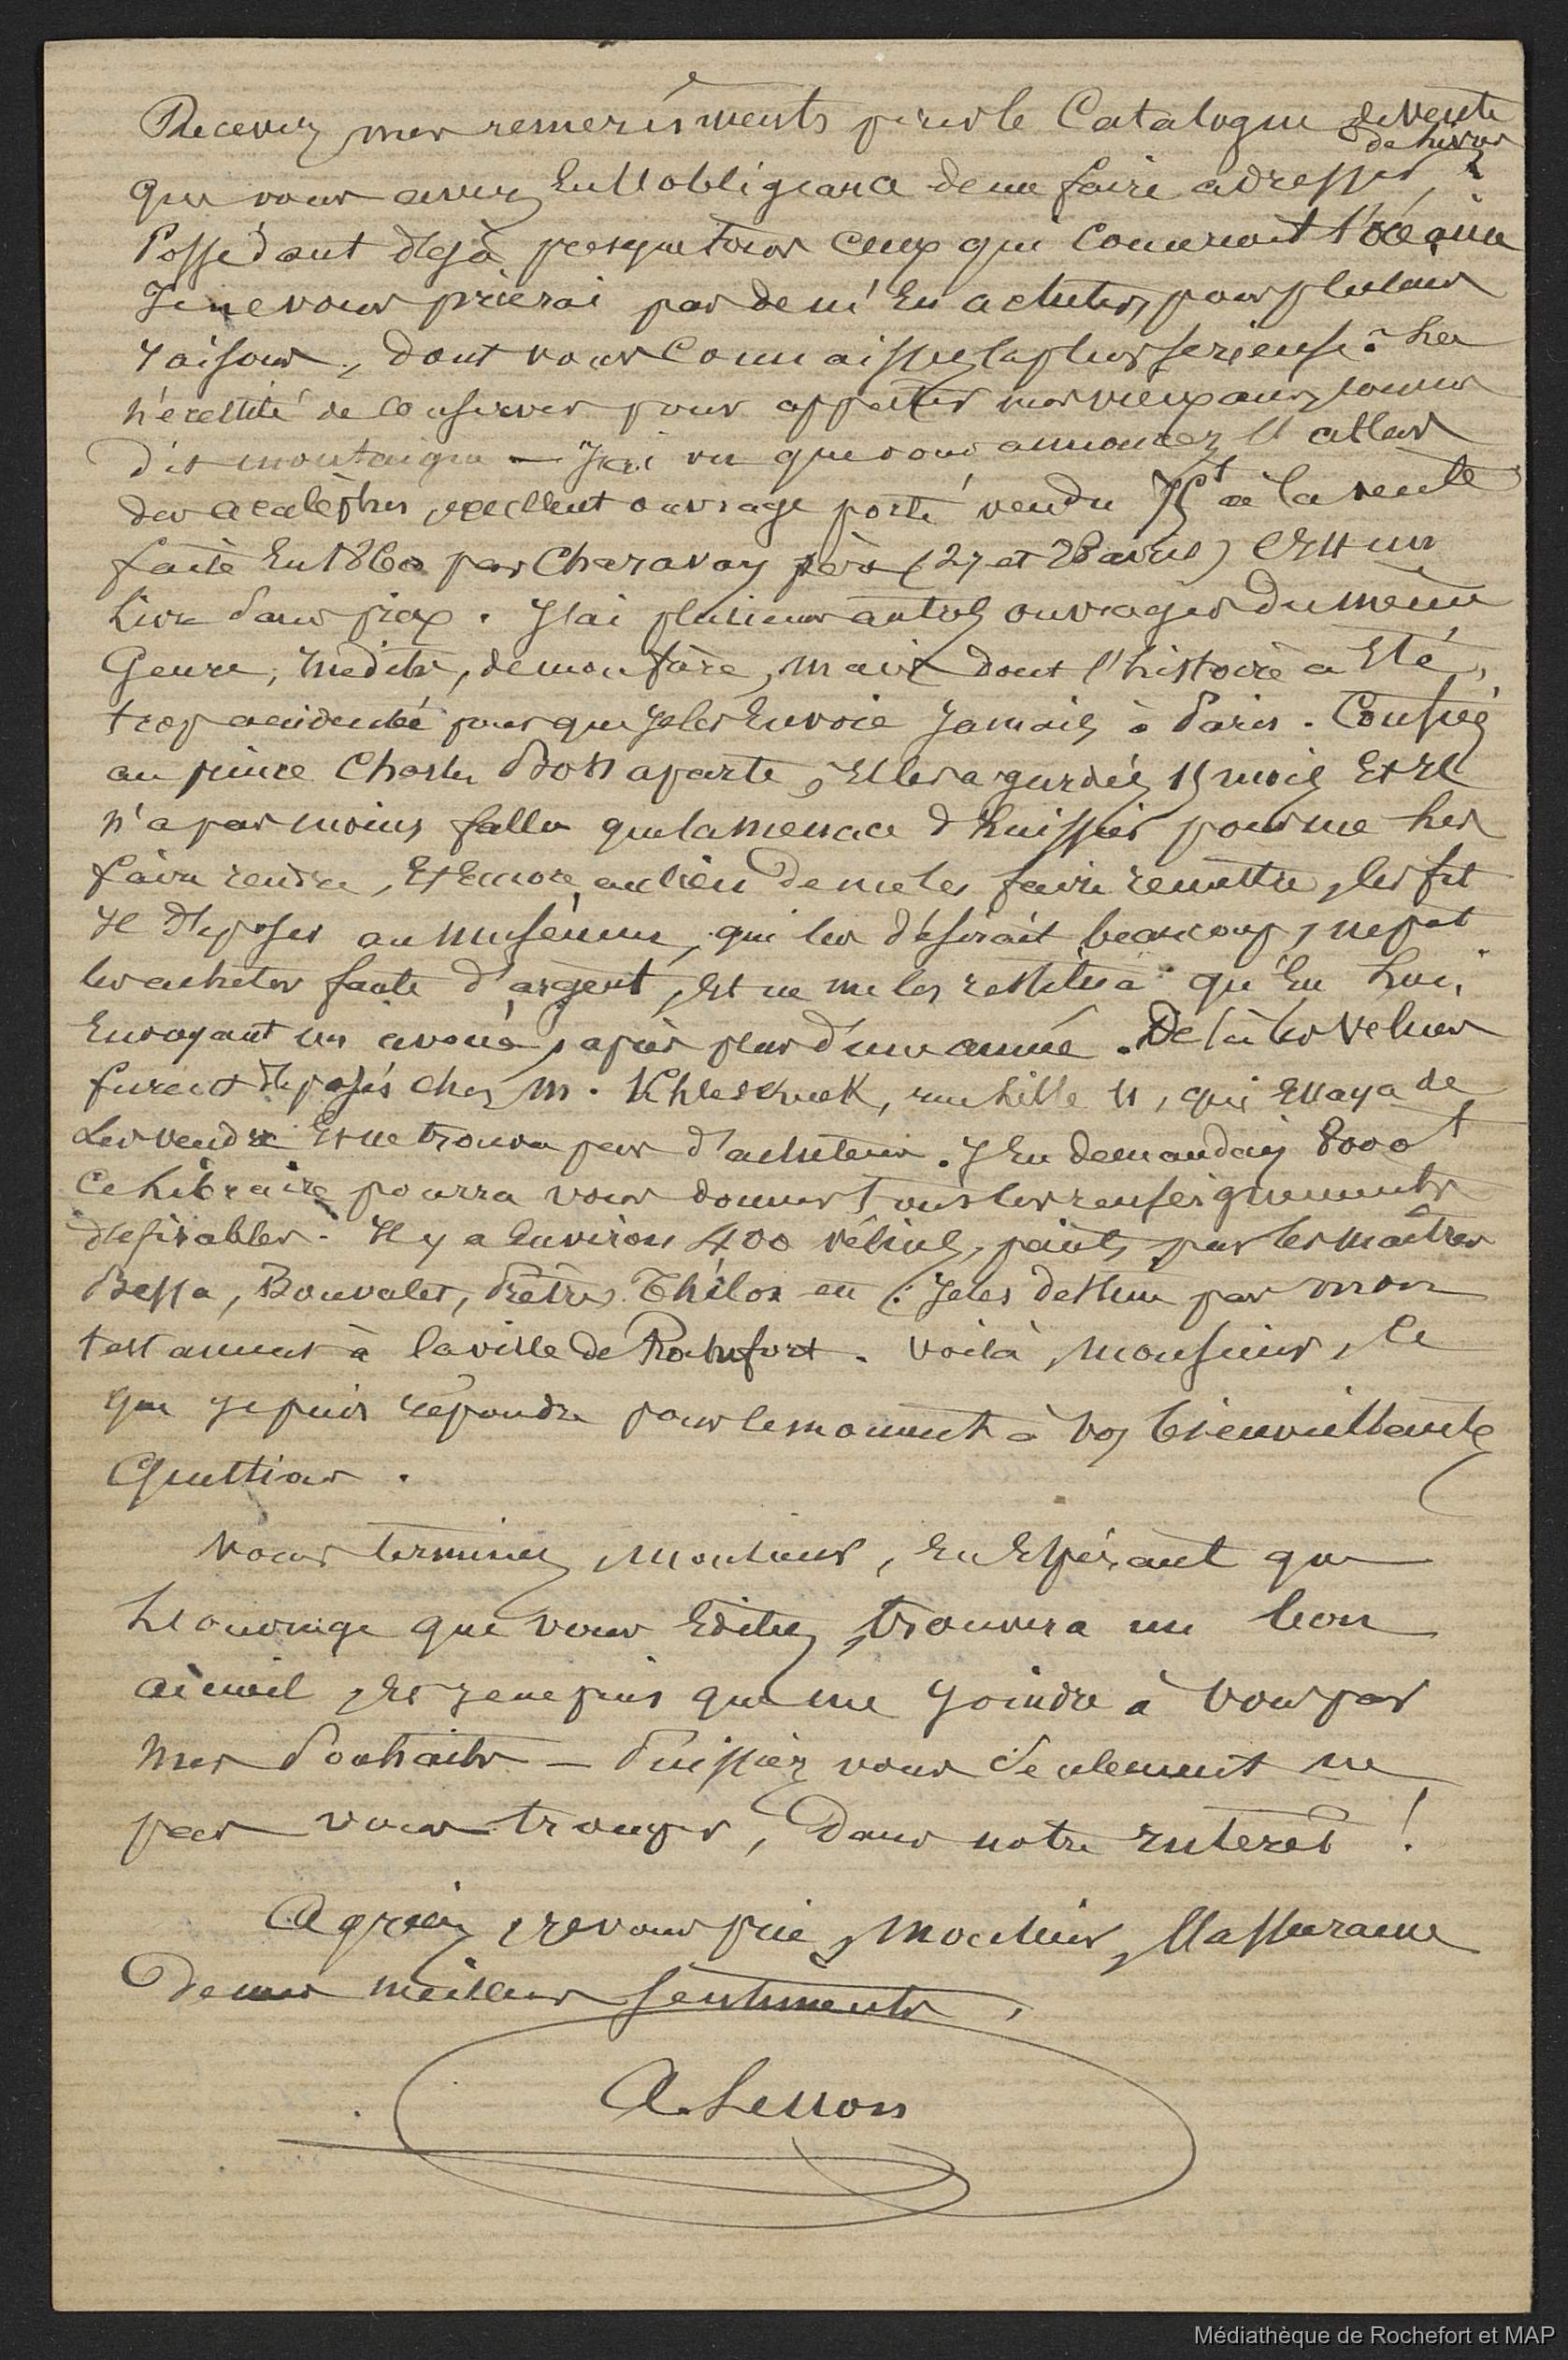 Recevez mes remercîments pour le Catalogue de vente
de livres
que vous avez eu l'obligeance de me faire adresser ;
Possédant déjà presque tous ceux qui concernent l'océanie
Je ne vous prierai pas de m'en acheter, pour plusieurs
raisons, dont vous connaissez la plus serieuse : La
nécessité de conserver pour appeter mes vieux ans, comme
dit montaigne — J'ai vu que vous annoncez l'atlas
des acalèphes, excellent ouvrage porté vendu 75f à la vente
faite en 1860 par Charavay père (27 et 28 avril) C'est un
Livre sans prix. J'ai plusieurs autres ouvrages du même
Genre, inédits, de mon frère, mais dont l'histoire a été
trop accidentée pour que je les envoie jamais à Paris. Confiés
au prince Charles Bonaparte, il les a gardés 15 mois et il
n'a pas moins fallu que la menace d'huissier pour me les
faire rendre, et encore, au lieu de me les faire remettre, les fit
il déposer au muséum, qui les désirait beaucoup, ne put
les acheter faute d'argent, et ne me les restitua qu'en lui
envoyant un avoué, après plus d'une année. De là les velins
furent déposés chez M. Khlescksiek, rue Lille 11, qui essaya de
Les vendre et ne trouva pas d'acheteur. J'en demandais 8000f
Ce Libraire pourra vous donner tous les renseignements
désirables. Il y a environ 400 vélins, peints par les maîtres
Bessa, Bouvalet, Prêtre, &c. Je les destine par mon
testament à la ville de Rochefort. Voilà, monsieur, ce
que je puis répondre pour le moment à vos bienveillantes
questions.
Vous terminez, Monsieur, en espérant que
L'ouvrage que vous éditez, trouvera un bon
accueil, et je ne puis que me joindre à vous par
mes souhaits — Puissiez vous seulement ne
pas vous tromper, dans notre intérêt !
Agréez, je vous prie, Monsieur, l'assurance
de mes meilleurs sentiments,
A. Lesson
Médiathèque de Rochefort et MAP